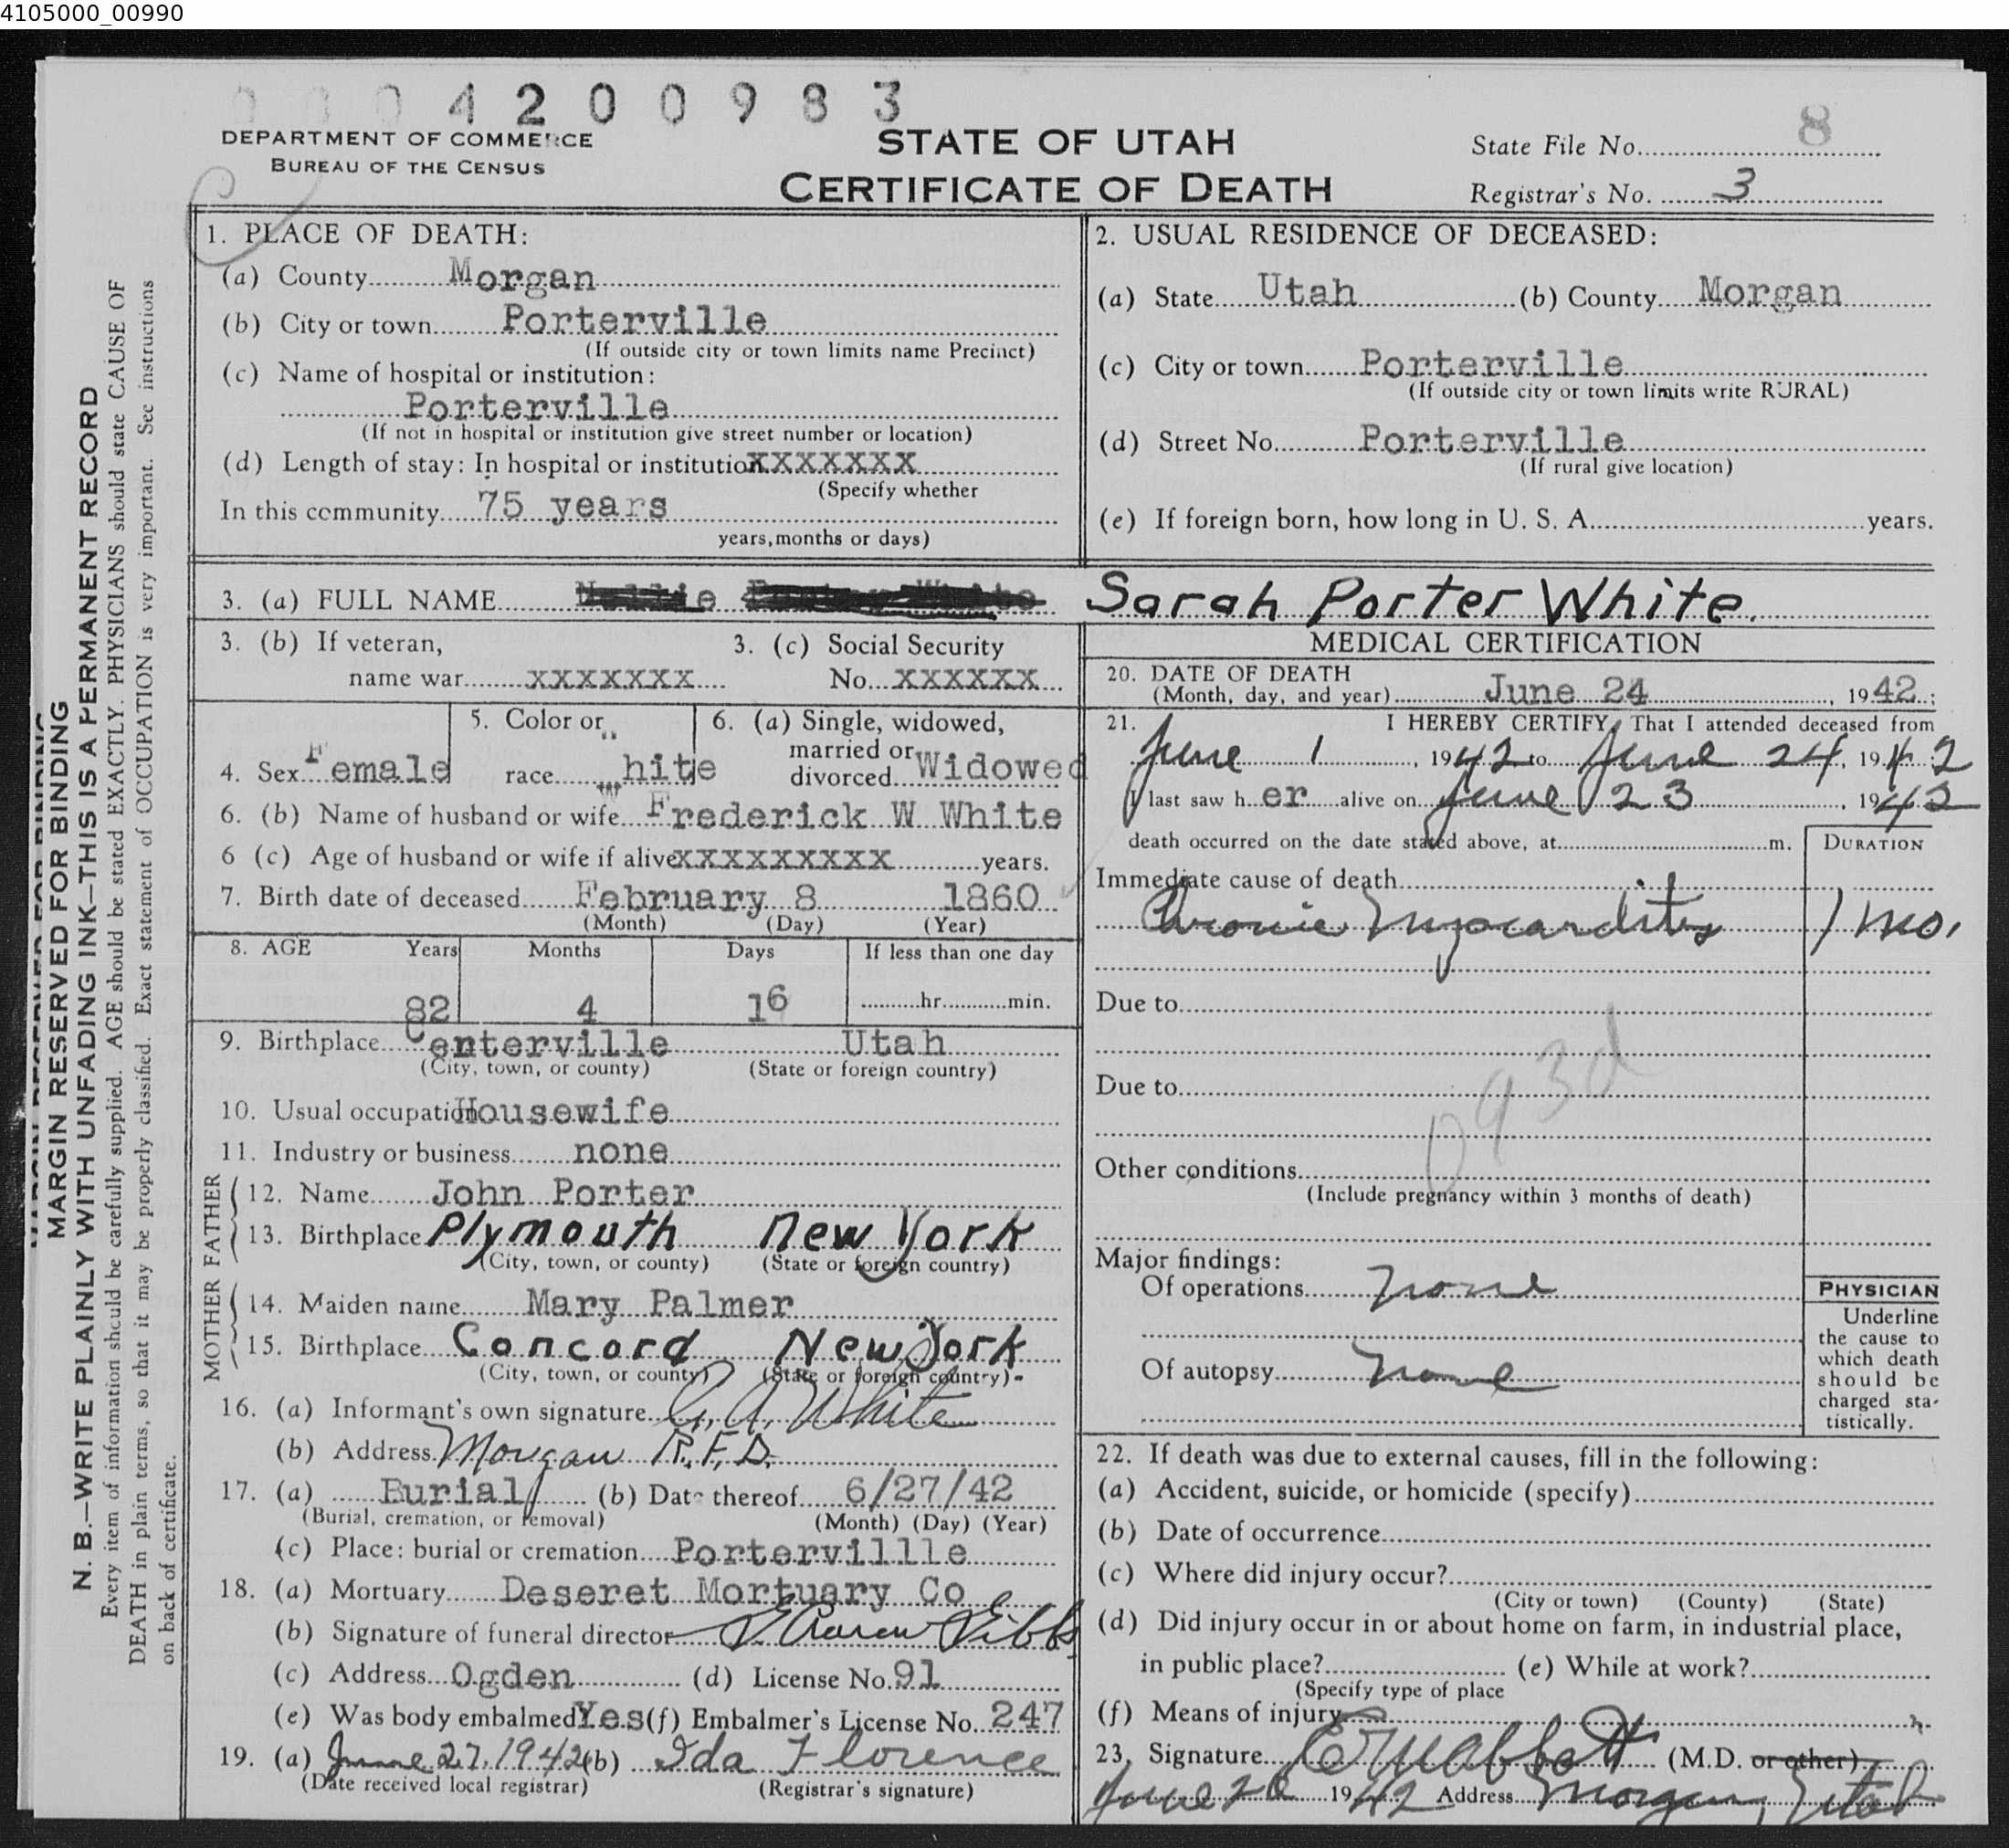 4105000_00990
0004200983
DEPARTMENT OF COMMERCE
BUREAU OF THE CENSUS
STATE OF UTAH
CERTIFICATE OF DEATH
State File No. 8
Registrar's No. 3
MARGIN RESERVED FOR BINDING
N. B.—WRITE PLAINLY WITH UNFADING INK—THIS IS A PERMANENT RECORD
Every item of information should be carefully supplied. AGE should be stated EXACTLY. PHYSICIANS should state CAUSE OF
DEATH in plain terms, so that it may be properly classified. Exact statement of OCCUPATION is very important. See instructions
on back of certificate.
1. PLACE OF DEATH:
(a) County Morgan
(b) City or town Porterville
(If outside city or town limits name Precinct)
(c) Name of hospital or institution:
Porterville
(If not in hospital or institution give street number or location)
(d) Length of stay: In hospital or institution XXXXXXX
(Specify whether
In this community 75 years
years, months or days)
2. USUAL RESIDENCE OF DECEASED:
(a) State Utah (b) County Morgan
(c) City or town Porterville
(If outside city or town limits write RURAL)
(d) Street No. Porterville
(If rural give location)
(e) If foreign born, how long in U. S. A. years.
3. (a) FULL NAME Sarah Porter White.
3. (b) If veteran,
name war XXXXXXX
3. (c) Social Security
No. XXXXXX
4. Sex Female
5. Color or
race White
6. (a) Single, widowed,
married or
divorced Widowed
6. (b) Name of husband or wife Frederick W White
6 (c) Age of husband or wife if alive XXXXXXXXX years.
7. Birth date of deceased February 8 1860
(Month) (Day) (Year)
8. AGE Years Months Days If less than one day
82 4 16 hr. min.
9. Birthplace Centerville Utah
(City, town, or county) (State or foreign country)
10. Usual occupation Housewife
11. Industry or business none
FATHER
12. Name John Porter
13. Birthplace Plymouth New York
(City, town, or county) (State or foreign country)
MOTHER
14. Maiden name Mary Palmer
15. Birthplace Concord New York
(City, town, or county) (State or foreign country)
16. (a) Informant's own signature A. White
(b) Address Morgan R.F.D.
17. (a) Burial (b) Date thereof 6/27/42
(Burial, cremation, or removal) (Month) (Day) (Year)
(c) Place: burial or cremation Portervillle
18. (a) Mortuary Deseret Mortuary Co
(b) Signature of funeral director Gibbs
(c) Address Ogden (d) License No. 91
(e) Was body embalmed Yes (f) Embalmer's License No. 247
19. (a) June 27, 1942 (b) Ida Florence
(Date received local registrar) (Registrar's signature)
MEDICAL CERTIFICATION
20. DATE OF DEATH
(Month, day, and year) June 24, 1942;
21. I HEREBY CERTIFY, That I attended deceased from
June 1, 1942 to June 24, 1942
I last saw her alive on June 23, 1942
death occurred on the date stated above, at m.
DURATION
Immediate cause of death
Chronic Myocarditis 1 mo.
Due to
Due to
93d
Other conditions
(Include pregnancy within 3 months of death)
Major findings:
Of operations none
Of autopsy none
PHYSICIAN
Underline
the cause to
which death
should be
charged sta-
tistically.
22. If death was due to external causes, fill in the following:
(a) Accident, suicide, or homicide (specify)
(b) Date of occurrence
(c) Where did injury occur?
(City or town) (County) (State)
(d) Did injury occur in or about home on farm, in industrial place,
in public place? (e) While at work?
(Specify type of place
(f) Means of injury
23. Signature Abbott (M.D. or other)
June 26 1942 Address Morgan, Utah